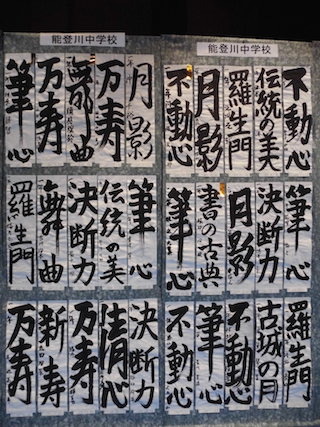 能登川中学校
不動心
伝統の美
羅生門
月影
不動心
筆心
決断力
月影
書の古典
筆心
羅生門
古城の月
不動心
筆心
不動心
能登川中学校
月影
万寿
舞曲
万寿
筆心
筆心
伝統の美
決断力
舞曲
羅生門
決断力
清心
万寿
新寿
万寿